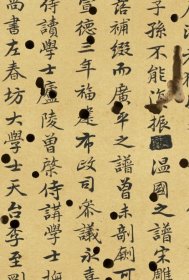 子孫不能振温國之譜宋雕
補綴而廣平之譜曾未剞劂可
宣德三年福建布政司叅議永嘉
侍讀學士廬陵曾棨侍講學士
尚書左春坊大學士天台李至剛